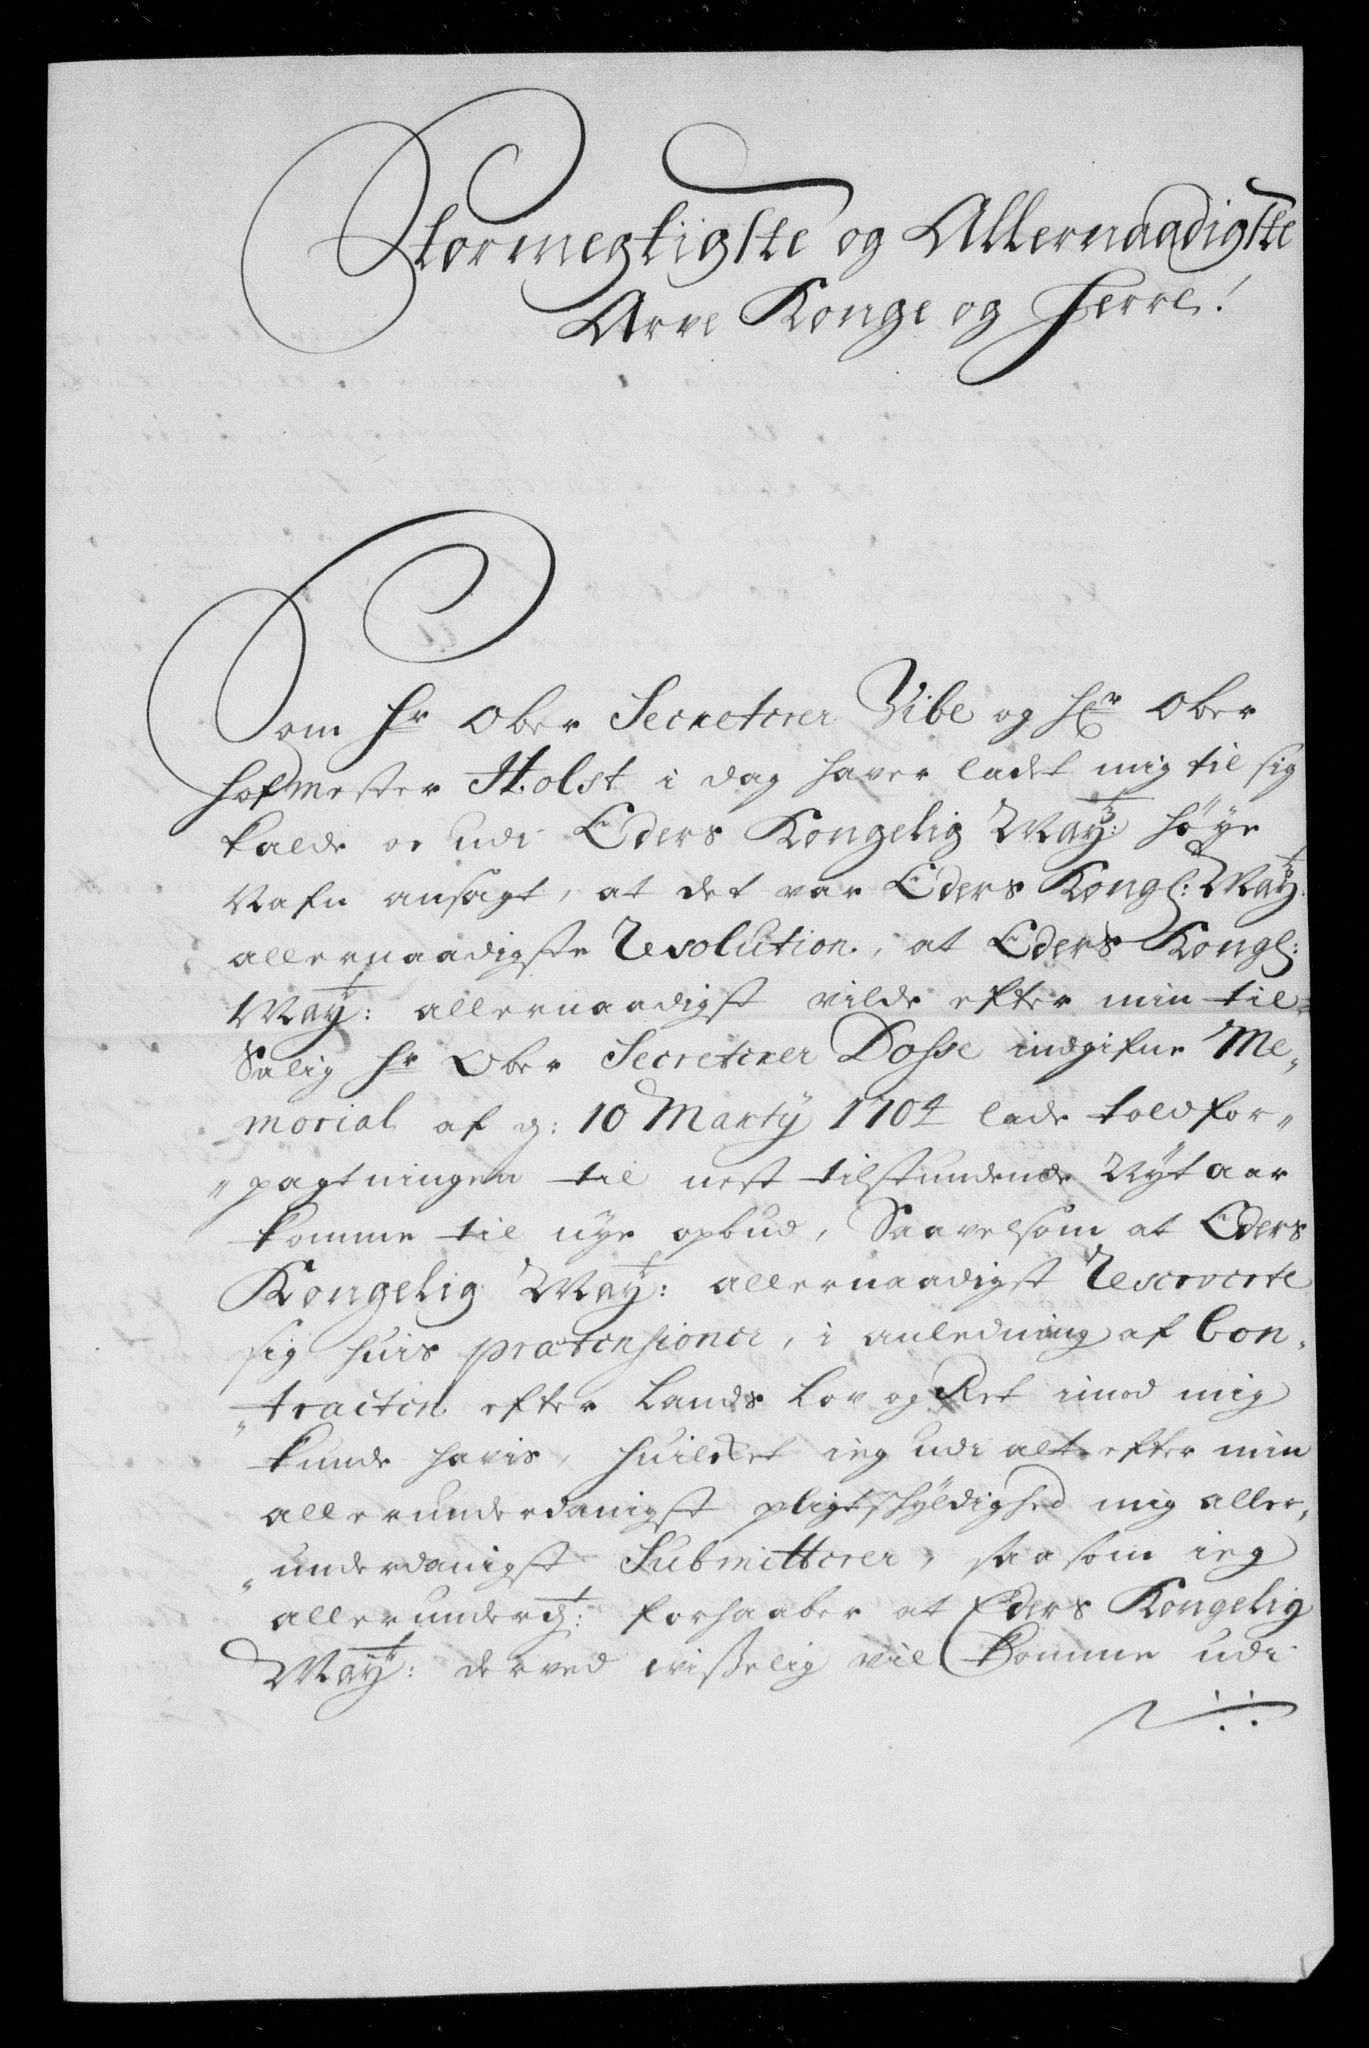 Stormegtigste og Allernaadigste
Arve Konge og Herre!
Som Hr Ober Secreterer Vibe og Hr Ober
Hofmester Holst i dag haver ladet mig til sig
kalde oc udi Eders Kongelig Mayt: høye
Nafn ansagt, at det var Eders Kongl: Mayt:
allernaadigste Resolution, at Eders Kongl:
Mayt: allernaadigst vilde efter min til
Salig Hr Ober Secreterer Dosse indgifne Me„
morial af d: 10 Marty 1704 lade toldfor„
„pagtningen til nest tilstundende Nyt aar
komme til nye opbud, Saavelsom at Eders
Kongelig Mayt: allernaadigst Reserverte
sig huis prætensioner, i anledning af Con„
„tracten efter Lands Lov og Ret imod mig
kunde havis, huilket ieg udi alt efter min
allerunderdanigst pligtskyldighed mig aller„
„underdanigst Submitterer, saasom ieg
allerunderdt: forhaaber at Eders Kongelig
Mayt: derved visselig vil komme udi